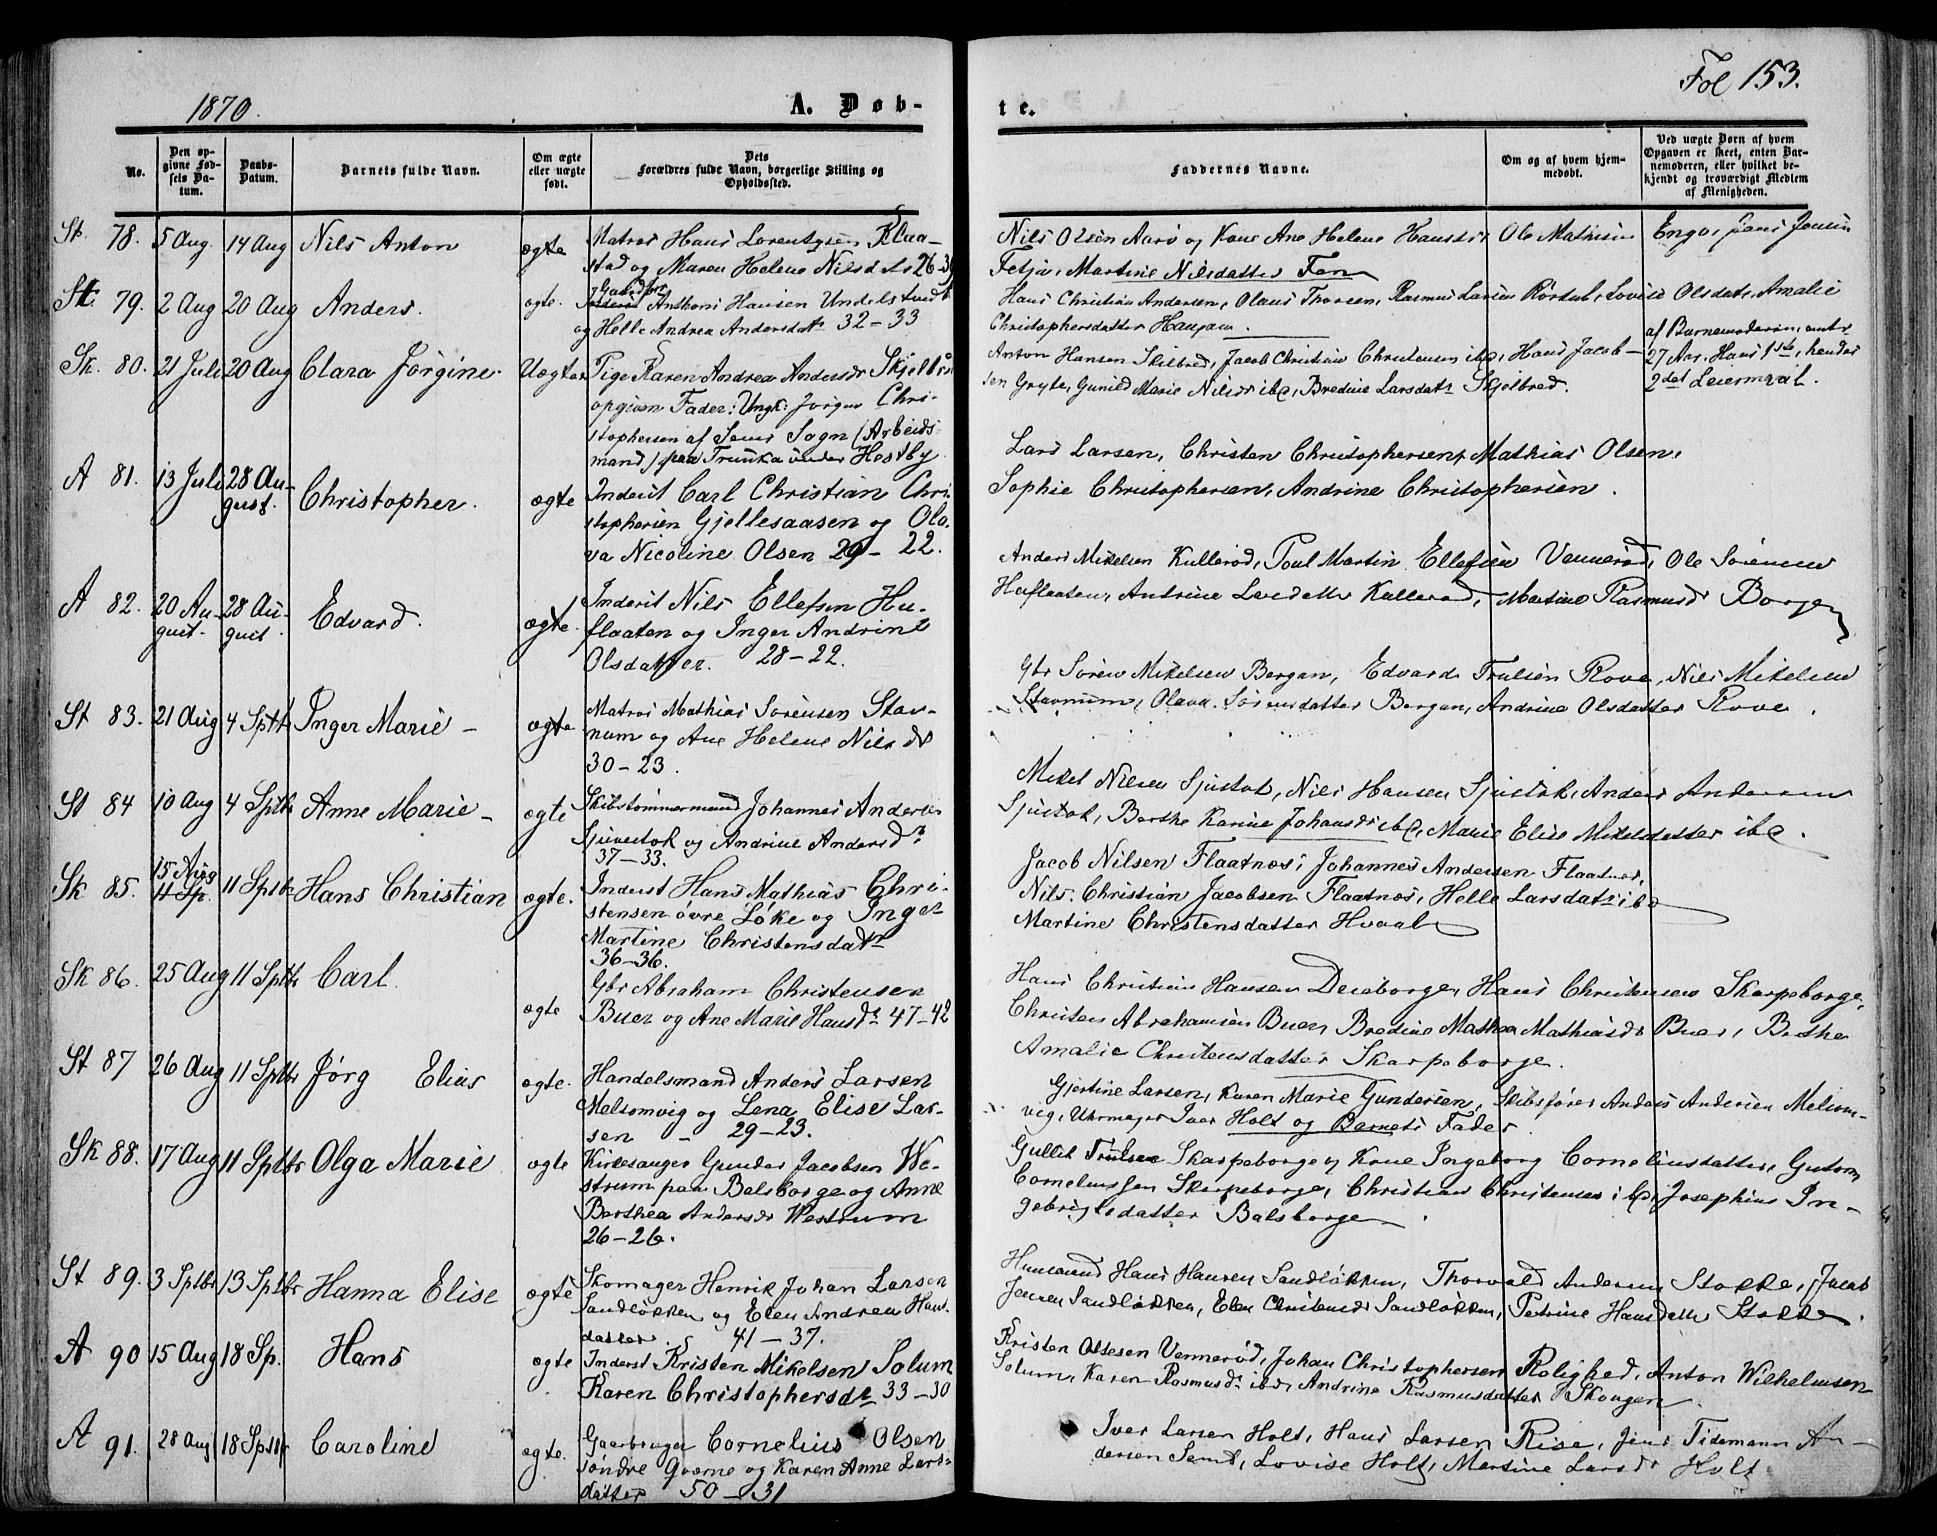 Fol 153.
1870.
A. Døb-
te.
No.
Den op-
givne Fød-
sels Da-
tum.
Daabs-
Datum.
Barnets fulde Navn.
Om ægte
eller uægte
født.
Dets
Forældres fulde Navn, borgerlige Stilling og
Opholdssted.
Faddernes Navne.
Om og af hvem hjem-
medøbt.
Ved uægte Børn af hvem
Opgaven er skeet, enten Bar-
nemoderen, eller hvilket be-
kjendt og troværdigt Medlem
af Menigheden.
St. 78. 5 Aug. 14 Aug Nils Anton ægte
Matros Hans Lorentzen Klaa-
stad og Maren Helene Nilsd 26-3
Nils Olsen Aarø og Kone Ane Helene Hansdr Ole Mathisen Engø, Jens Jensen
Martine Nilsdatter
St. 79. 2 Aug 20 Aug Anders. ægte.
Anthoni Hansen Undelstvedt
og Helle Andrea Andersdatr 32-33
Hans Christian Andersen, Olaus Thoresen, Rasmus Larsen Rørdal, Lovise Olsdatr, Amalie
Christophersdatter Haugan.
Sk. 80. 21 Juli 20 Aug Clara Jörgine. Uægte
Pige Karen Andrea Andersdr Skjelbred
opgiven Fader: Ungk: Jörgen Chri-
stophersen af Sems Sogn (Arbeids-
mand) paa Trunka under Hestby
Anton Hansen Skilbred, Jacob Christian Christensen ibd, Hans Jacob-
sen Gryte, Gunild Marie Nilsdr ibd, Bredine Larsdatr Skjelbred.
af Barnemoderen,
27 Aar. Hans 1ste, hendes
2det Leiermaal.
A 81. 13 Juli 28 Au-
gust. Christopher. ægte
Inderst Carl Christian Chri-
stophersen Gjellesaasen og Ola-
va Nicoline Olsen 29-22.
Lars Larsen, Christen Christophersen, Mathias Olsen,
Sophie Christophersen, Andrine Christophersen.
A 82. 20 Au-
gust. 28 Au-
gust. Edvard. ægte.
Inderst Nils Ellefsen Hu-
flaaten og Inger Andrine
Olsdatter. 28-22.
Anders Mikelsen Kullerød, Poul Martin Ellefsen Vennerød, Ole Sörensen
Huflaaten, Antrine Kullerød, Martine Rasmusdr Borgen
St 83. 21 Aug 4 Sptbr Inger Marie - ægte
Matros Mathias Sörensen Stav-
num og Ane Helene Nilsdr
30-23.
Gbr Sören Mikelsen Bergan, Edvard Trulsen Rove, Nils Mikelsen
Stavnum, Olava Sörensdatter Bergan, Andrine Olsdatter Rove.
St 84 10 Aug 4 Sptbr Anne Marie - ægte
Skibstömmermand Johannes Anders
Sjuestok og Andrine Andersdr
37-33.
Mikel Nilsen Sjustok, Nils Hansen Sjustok, Anders Andersen
Sjustok, Berthe Karine Johansdr ibd, Marie Elise Mikelsdatter ibd.
Sk 85. 15 Aug
11 Sp. 11 Sptbr Hans Christian ægte.
Inderst Hans Mathias Chri-
stensen övre Löke og Inger
Martine Christensdatr
36-36.
Jacob Nilsen Flaatnes, Johannes Andersen Flaatnes,
Nils Christian Jacobsen Flaatnes, Helle Larsdatr ibd
Martine Christensdatter Hvaal
Sk 86. 25 Aug 11 Sptbr Carl ægte
Gbr Abraham Christensen
Buer og Ane Marie Hansdr 47-42
Hans Christian Hansen Deieborge, Hans Christensen Skarpeborge,
Christen Abrahamsen Buer, Bredine Mathea Mathiasdr Buer, Berthe
Amalie Christensdatter Skarpeborge.
St 87 26 Aug 11 Sptbr Jörg Elias ægte.
Handelsmand Anders Larsen
Melsomvig og Lena Elise Lar-
sen - 29-23.
Gjertine Larsen, Karen Marie Gundersen, Skibsförer Anders Andersen Melsom-
vig, Uhrmager Iver Holt og Barnets Fader.
Sk 88. 17 Aug 11 Sptbr Olga Marie ægte
Kirkesanger Gunder Jacobsen We-
strum paa Balsborge og Anne
Berthea Andersdr Westrum
26-26.
Gullik Trulsen Skarpeborge og Kone Ingeborg Corneliusdatter, Guttorm
Corneliussen Skarpeborge, Christian Christensen ibd, Josephine In-
gebrigtsdatter Balsborge.
St 89. 3 Sptbr 13 Sptbr Hanna Elise ægte
Skomager Henrik Johan Larsen
Sandløkken og Elen Andrea Hans-
datter. 41-37.
Huusmand Hans Hansen Sandløkken, Thorvald Andersen Stokke, Jacob
Jensen Sandløkken, Elen Christensdr Sandløkken, Petrine Hansdatter Stokke.
A 90 15 Aug 18 Sp. Hans ægte
Inderst Kristen Mikelsen Solum
Karen Christophersdr 33-30
Kristen Ottesen Vennerød, Johan Christophersen Rolighed, Anton Wilhelmsen
Solum, Karen Rasmusdr ibd, Andrine Rasmusdatter Skougen.
A 91. 28 Aug 18 Sptbr Caroline ægte.
Gaarbruger Cornelius Olsen
søndre Gverne og Karen Anne Lars-
datter 50-31
Iver Larsen Holt, Hans Larsen Rise, Jens Tidemann An-
dersen Sand, Lovise Holt, Martine Larsdr Holt